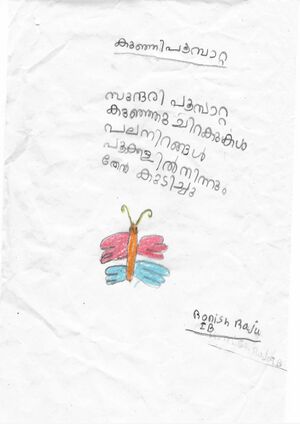 കുഞ്ഞിപൂമ്പാറ്റ
സുന്ദരി പൂമ്പാറ്റ
കുഞ്ഞു ചിറകുകൾ
പലനിറങ്ങൾ
പൂക്കളിൽനിന്നും
തേൻ കുടിച്ചു
Ronish Raju
IB